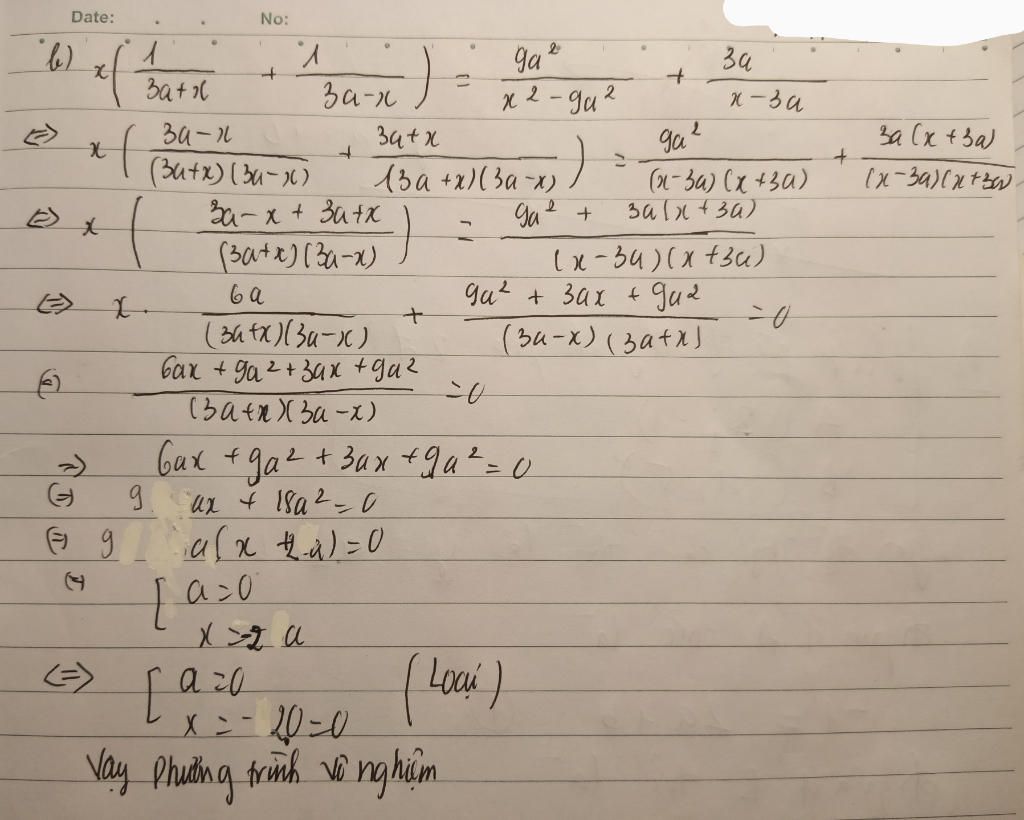 Date: . . No:
b) x(1/(3a+x) + 1/(3a-x)) = 9a²/(x²-9a²) + 3a/(x-3a)
⇔ x((3a-x)/((3a+x)(3a-x)) + (3a+x)/((3a+x)(3a-x))) = 9a²/((x-3a)(x+3a)) + 3a(x+3a)/((x-3a)(x+3a))
⇔ x((3a-x+3a+x)/((3a+x)(3a-x))) = (9a²+3a(x+3a))/((x-3a)(x+3a))
⇔ x. 6a/((3a+x)(3a-x)) + (9a²+3ax+9a²)/((3a-x)(3a+x)) = 0
⇔ (6ax+9a²+3ax+9a²)/((3a+x)(3a-x)) = 0
⇒ 6ax+9a²+3ax+9a² = 0
⇔ 9ax + 18a² = 0
⇔ 9a(x+2a) = 0
⇔ [ a=0
x=-2a
⇔ [ a=0 (Loại)
x=-2.0=0
Vậy phương trình vô nghiệm